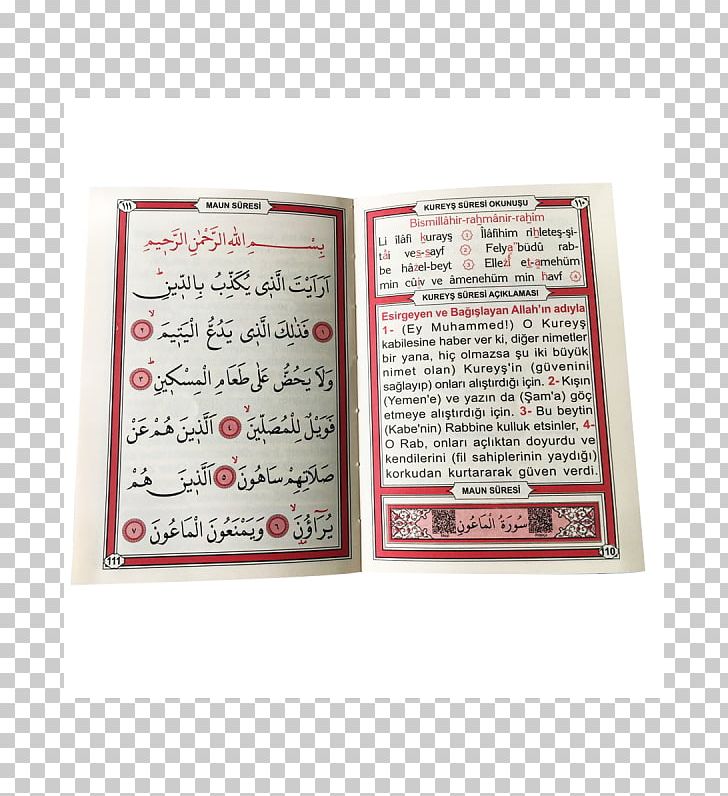 KUREYŞ SÛRESİ OKUNUŞU
١١٠
Bismillâhir-rahmânir-rahim
Li îlâfi kurayş ١ Îlâfihim rihleteş-şi-
tâi ves-sayf ٢ Felya'büdû rab-
be hâzel-beyt ٣ Ellezî et-amehüm
min cûiv ve âmenehüm min havf ٤
KUREYŞ SÛRESİ AÇIKLAMASI
Esirgeyen ve Bağışlayan Allah'ın adıyla
1- (Ey Muhammed!) O Kureyş
kabilesine haber ver ki, diğer nimetler
bir yana, hiç olmazsa şu iki büyük
nimet olan) Kureyş'in (güvenini
sağlayıp) onları alıştırdığı için. 2- Kışın
(Yemen'e) ve yazın da (Şam'a) göç
etmeye alıştırdığı için. 3- Bu beytin
(Kabe'nin) Rabbine kulluk etsinler, 4-
O Rab, onları açlıktan doyurdu ve
kendilerini (fil sahiplerinin yaydığı)
korkudan kurtararak güven verdi.
MAUN SÛRESİ
سُورَةُ الْمَاعُونِ
110
١١١
MAUN SÛRESİ
بِسْمِ اللهِ الرَّحْمٰنِ الرَّحٖيمِ
اَرَاَيْتَ الَّذٖى يُكَذِّبُ بِالدّٖينِ
١ فَذٰلِكَ الَّذٖى يَدُعُّ الْيَتٖيمَ ٢
وَلَا يَحُضُّ عَلٰى طَعَامِ الْمِسْكٖينِ ٣
فَوَيْلٌ لِلْمُصَلّٖينَ ٤ اَلَّذٖينَ هُمْ عَنْ
صَلَاتِهِمْ سَاهُونَ ٥ اَلَّذٖينَ هُمْ
يُرَٓاؤُ۫نَ ٦ وَيَمْنَعُونَ الْمَاعُونَ ٧
111